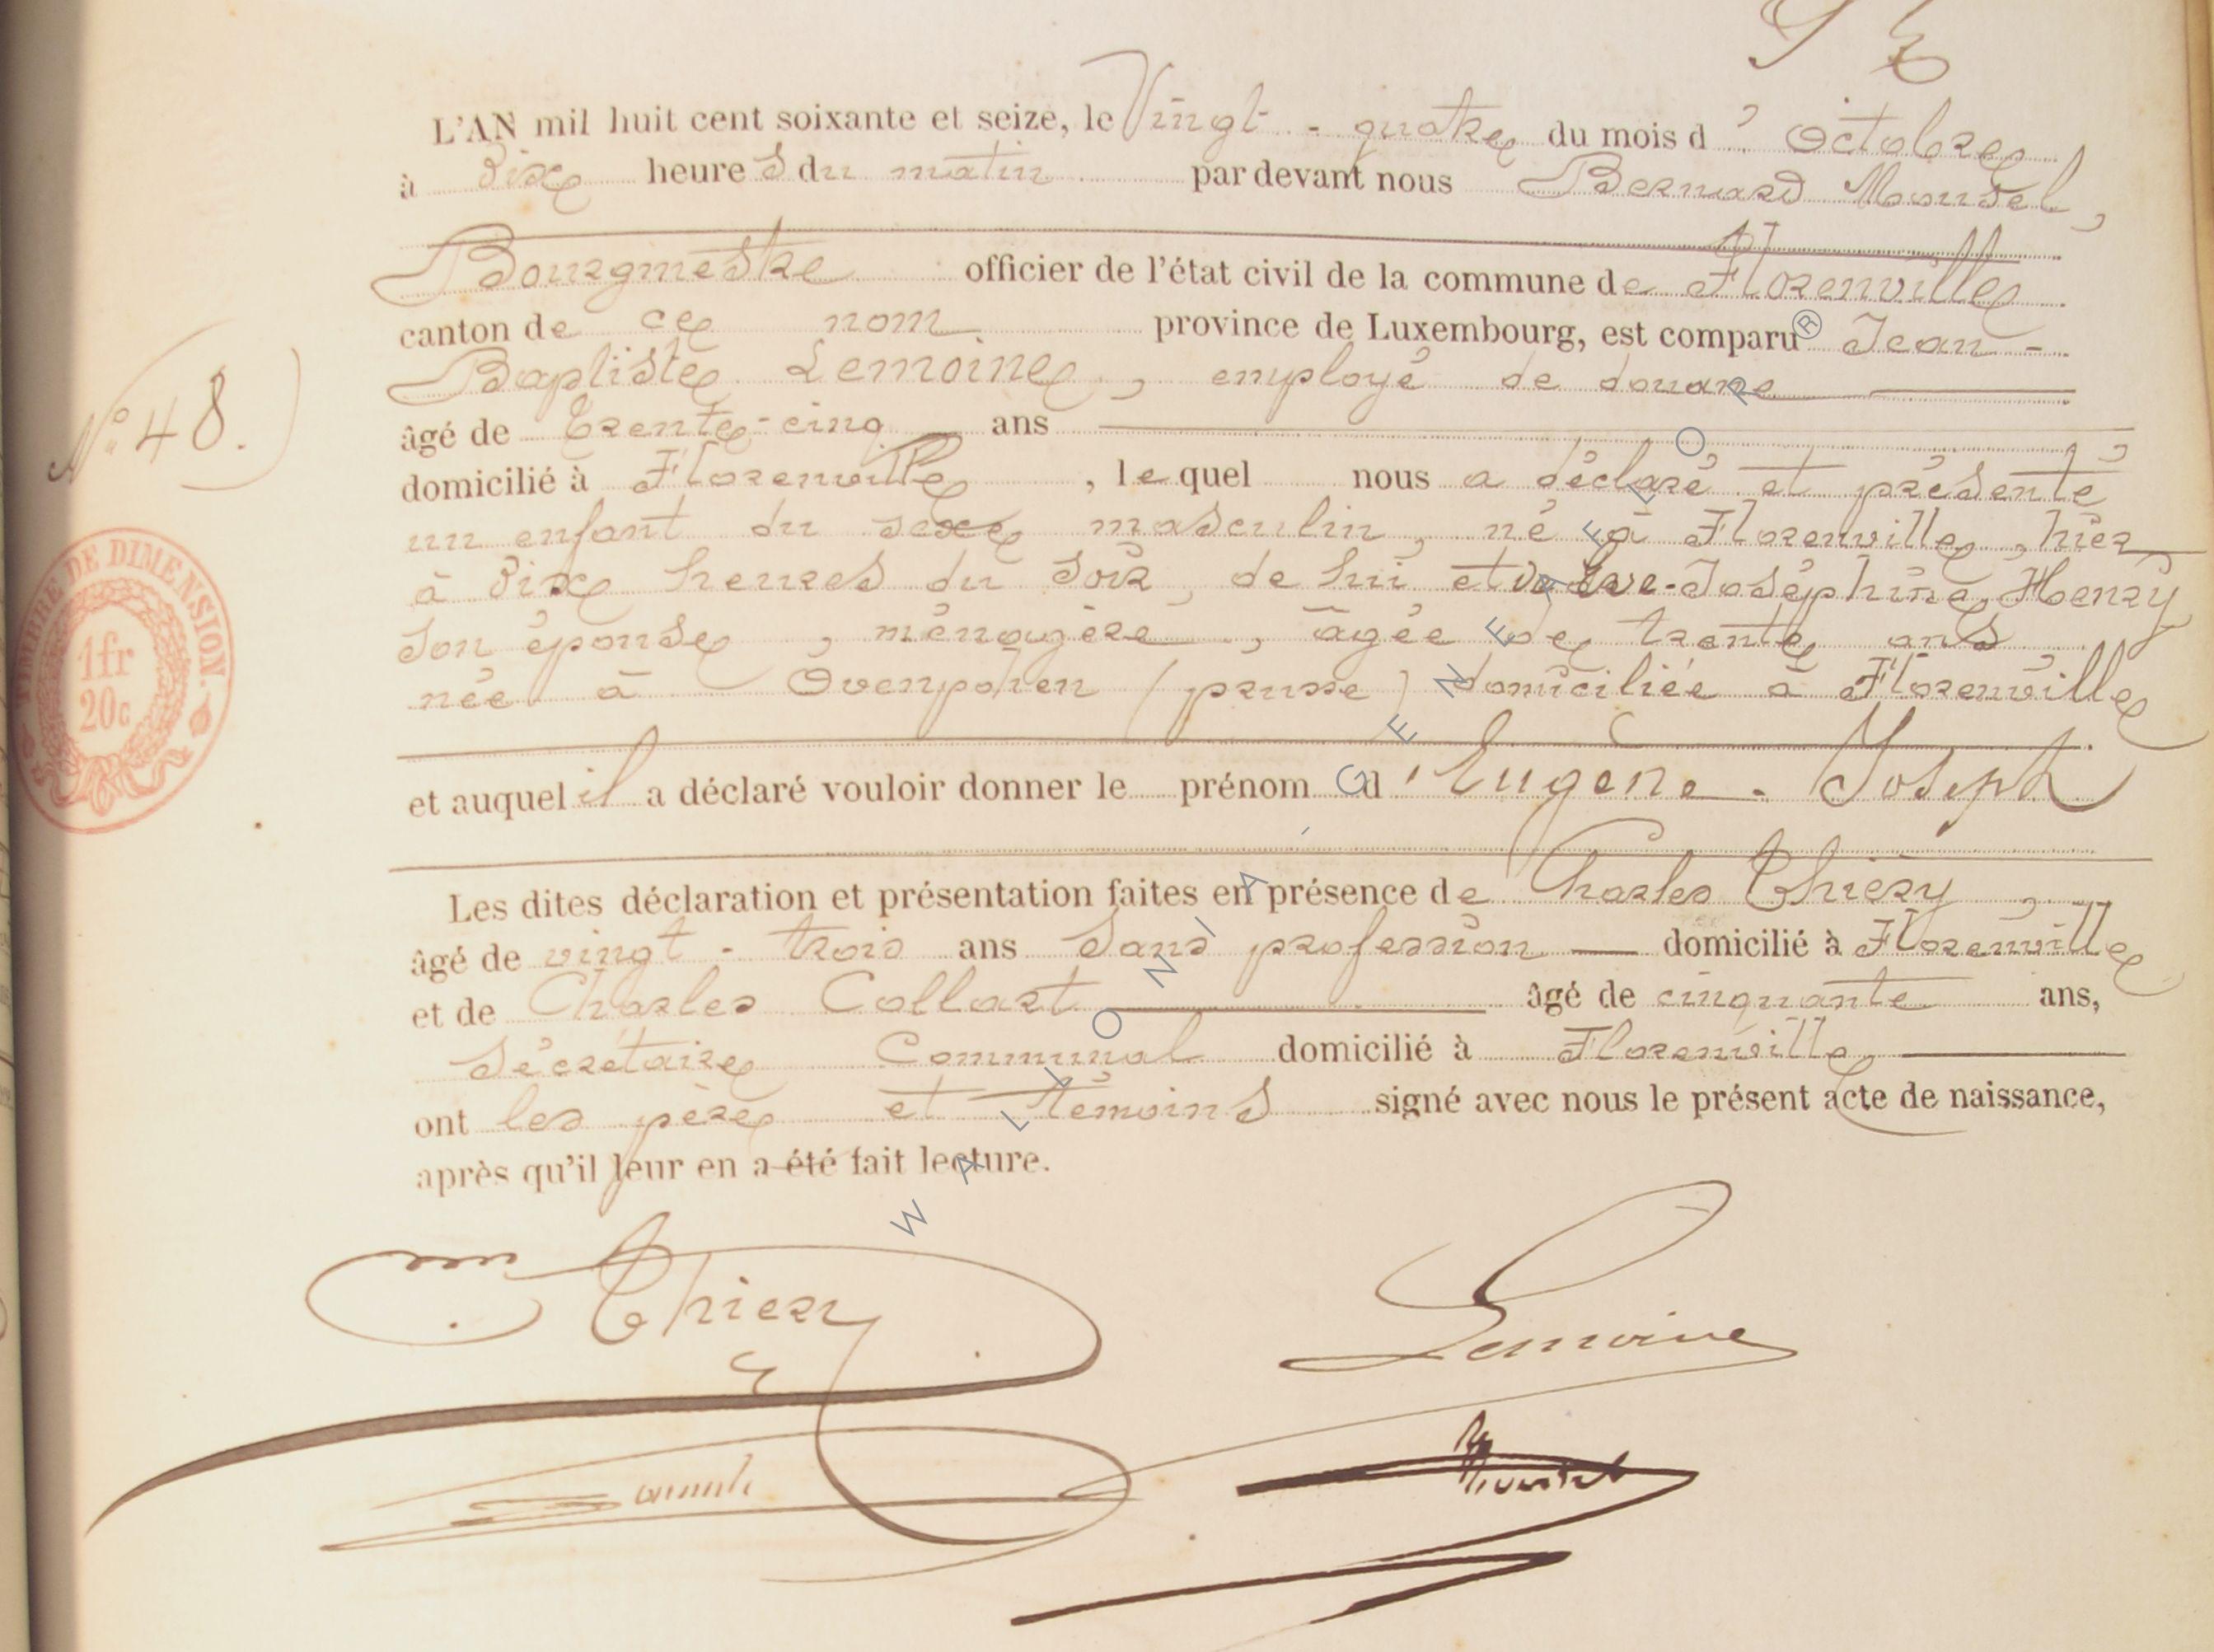 L'AN mil huit cent soixante et seize, le Vingt-quatre du mois d' Octobre
à Dix heures du matin par devant nous Bernard Mousel,
Bourgmestre officier de l'état civil de la commune de Florenville
canton de ce nom province de Luxembourg, est comparu Jean-
Baptiste Lemoine, employé de douane
N° 48.
âgé de trente-cinq ans
domicilié à Florenville, lequel nous a déclaré et présenté
un enfant du sexe masculin, né à Florenville, hier
à Dix heures du soir, de lui et de Eve-Joséphine Henry
son épouse, ménagère, âgée de trente ans
née à Ovenphen (prusse) domiciliée à Florenville
TIMBRE DE DIMENSION.
1fr
20c
et auquel il a déclaré vouloir donner le prénom d'Eugene-Joseph
Les dites déclaration et présentation faites en présence de Charles Thiéry,
âgé de vingt-trois ans sans profession domicilié à Florenville
et de Charles Collart âgé de cinquante ans,
Sécrétaire Communal domicilié à Florenville
ont les père et témoins signé avec nous le présent acte de naissance,
après qu'il leur en a été fait lecture.
Thiery
Lemoine
WALLONIA'GENEFERO®